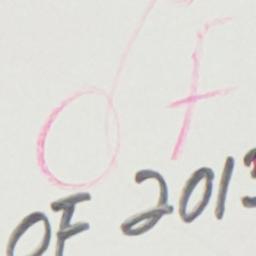 of
OF 2013